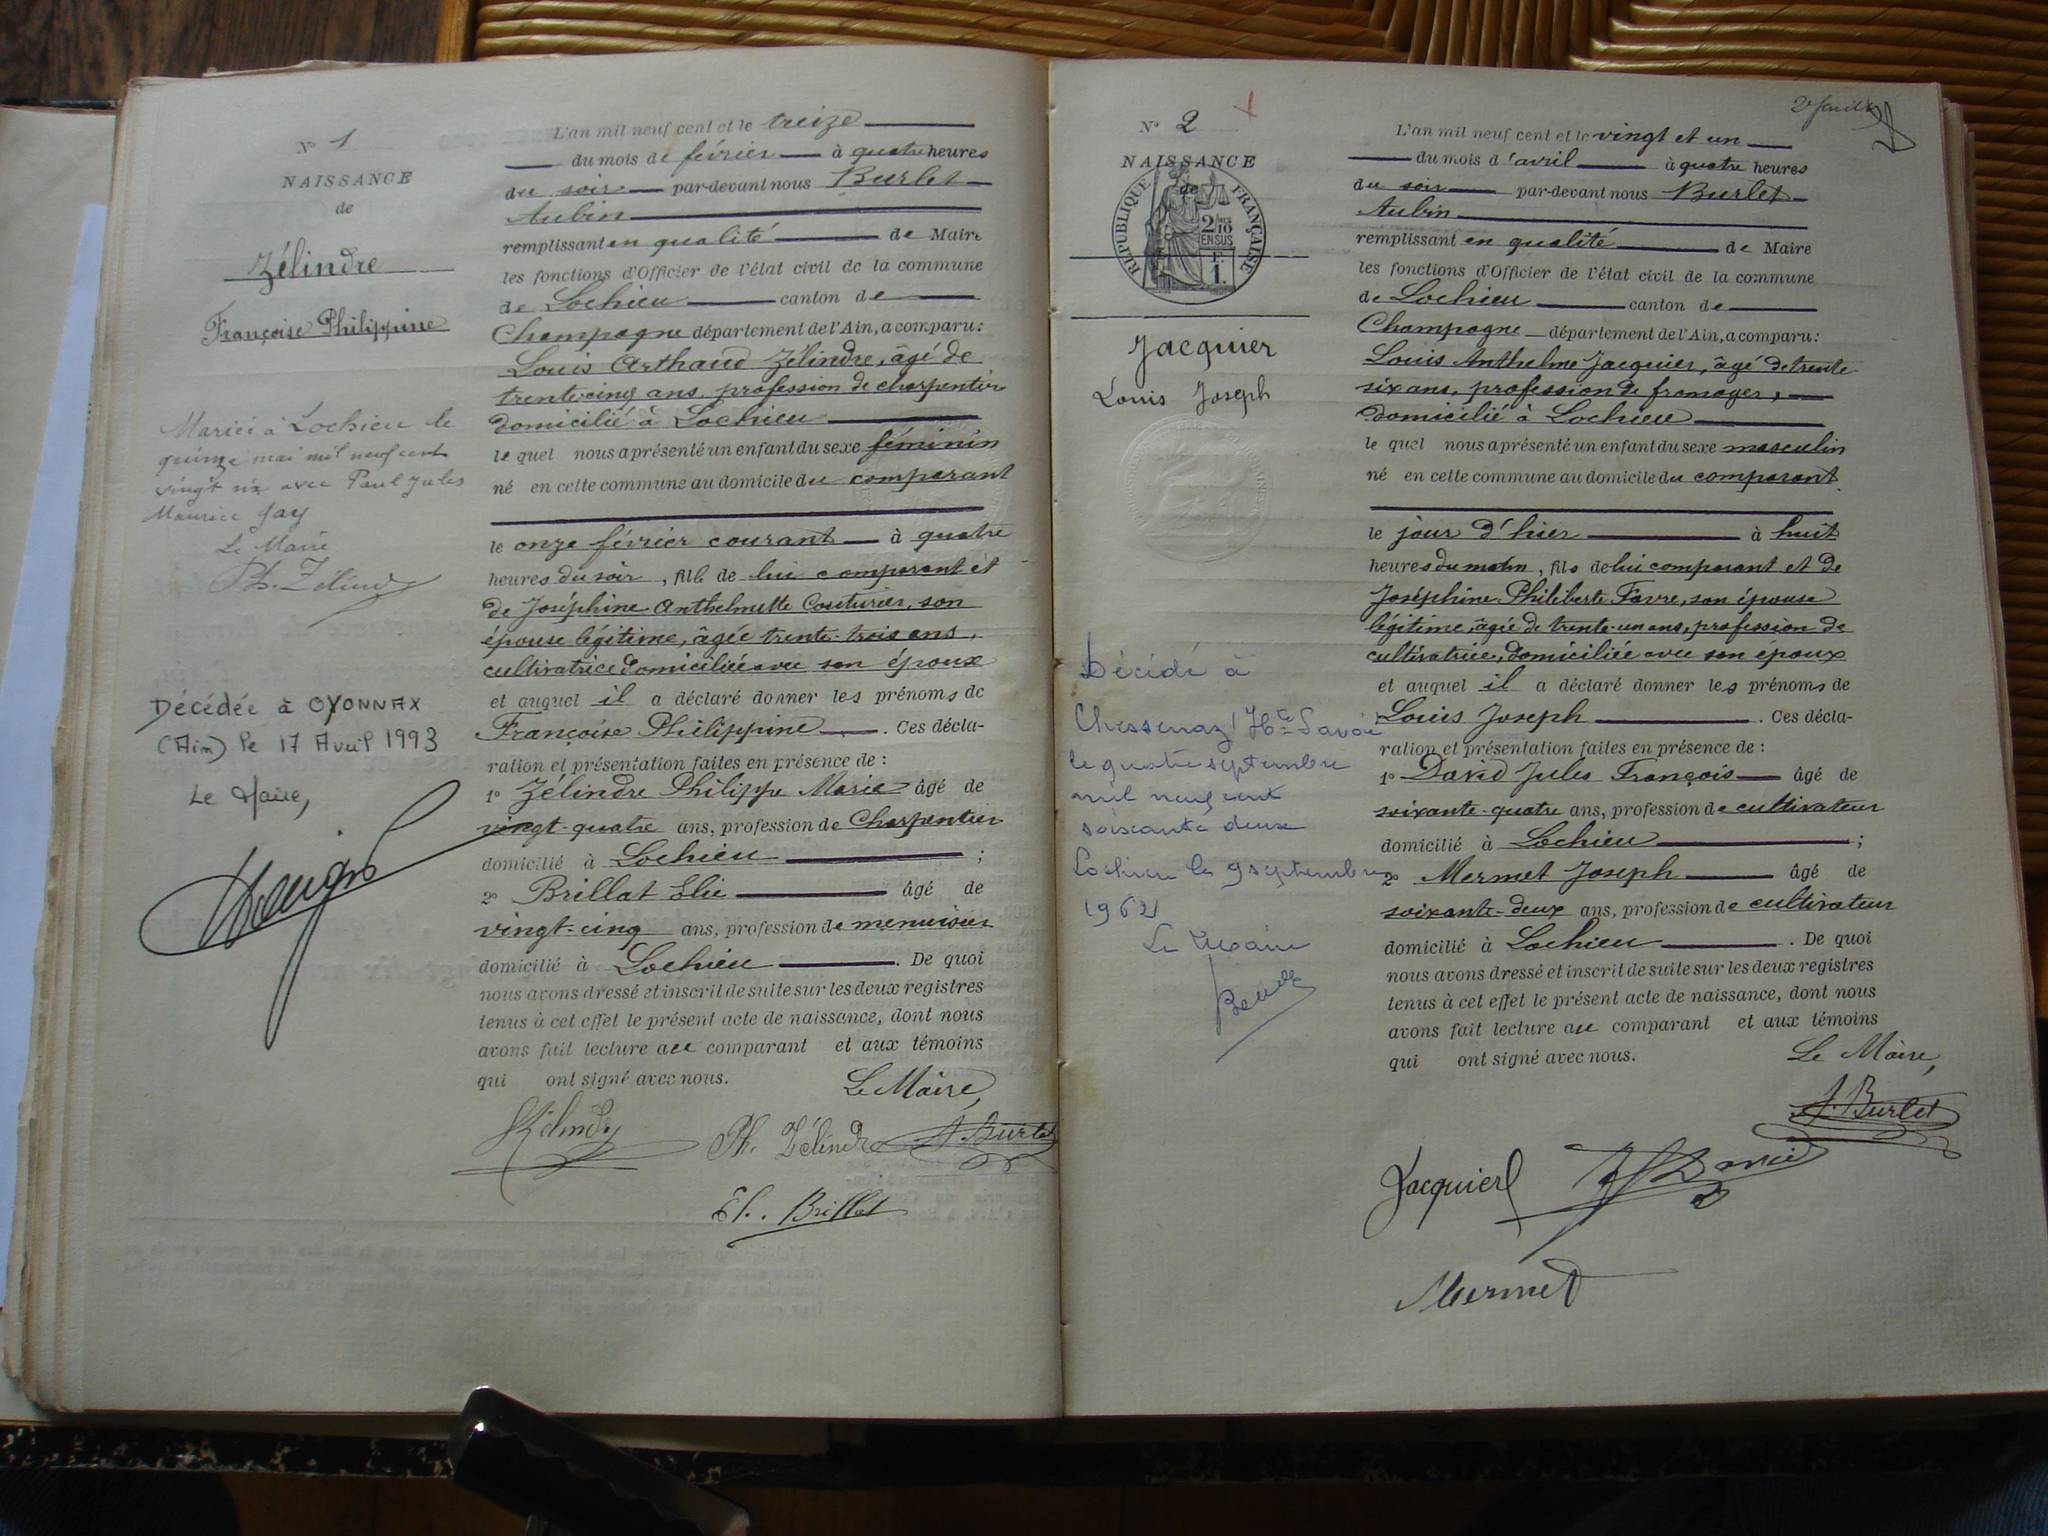 N° 1
NAISSANCE
de
Zélindre
Françoise Philippine
Mariée à Lochieu le
quinze mai mil neuf cent
vingt six avec Paul Jules
Maurice Jay
Le Maire
Ph. Zélindre
Décédée à OYONNAX
(Ain) le 17 Avril 1993
Le Maire,
L'an mil neuf cent et le treize
du mois de février à quatre heures
du soir par-devant nous Burlet
Aubin
remplissant en qualité de Maire
les fonctions d'Officier de l'état civil de la commune
de Lochieu canton de
Champagne département de l'Ain, a comparu:
Louis Arthaud Zélindre, âgé de
trente-cinq ans, profession de charpentier
domicilié à Lochieu
le quel nous a présenté un enfant du sexe féminin
né en cette commune au domicile du comparant
le onze février courant à quatre
heures du soir, fille de lui comparant et
de Joséphine Anthelmette Couturier, son
épouse légitime, âgée trente-trois ans,
cultivatrice domiciliée avec son époux
et auquel il a déclaré donner les prénoms de
Françoise Philippine. Ces décla-
ration et présentation faites en présence de :
1° Zélindre Philippe Marie âgé de
vingt-quatre ans, profession de Charpentier
domicilié à Lochieu ;
2° Brillat Elie âgé de
vingt-cinq ans, profession de menuisier
domicilié à Lochieu. De quoi
nous avons dressé et inscrit de suite sur les deux registres
tenus à cet effet le présent acte de naissance, dont nous
avons fait lecture au comparant et aux témoins
qui ont signé avec nous.
Le Maire,
Zélindre Ph. Zélindre A. Burlet
El. Brillat
N° 2
NAISSANCE
de
RÉPUBLIQUE FRANÇAISE
2/10
EN SUS
F.
1.
Jacquier
Louis Joseph
Décédé à
Chessenaz (Hte Savoie
le quatre septembre
mil neuf cent
soixante deux
Lochieu le 9 septembre
1962
Le Maire
2e feuillet
L'an mil neuf cent et le vingt et un
du mois d'avril à quatre heures
du soir par-devant nous Burlet
Aubin
remplissant en qualité de Maire
les fonctions d'Officier de l'état civil de la commune
de Lochieu canton de
Champagne département de l'Ain, a comparu:
Louis Anthelme Jacquier, âgé de trente
six ans, profession de fromager,
domicilié à Lochieu
le quel nous a présenté un enfant du sexe masculin
né en cette commune au domicile du comparant
le jour d'hier à huit
heures du matin, fils de lui comparant et de
Joséphine Philiberte Favre, son épouse
légitime, âgée de trente-un ans, profession de
cultivatrice, domiciliée avec son époux
et auquel il a déclaré donner les prénoms de
Louis Joseph. Ces décla-
ration et présentation faites en présence de :
1° David Jules François âgé de
soixante-quatre ans, profession de cultivateur
domicilié à Lochieu ;
2° Mermet Joseph âgé de
soixante-deux ans, profession de cultivateur
domicilié à Lochieu. De quoi
nous avons dressé et inscrit de suite sur les deux registres
tenus à cet effet le présent acte de naissance, dont nous
avons fait lecture au comparant et aux témoins
qui ont signé avec nous.
Le Maire,
A. Burlet
Jacquier David
Mermet